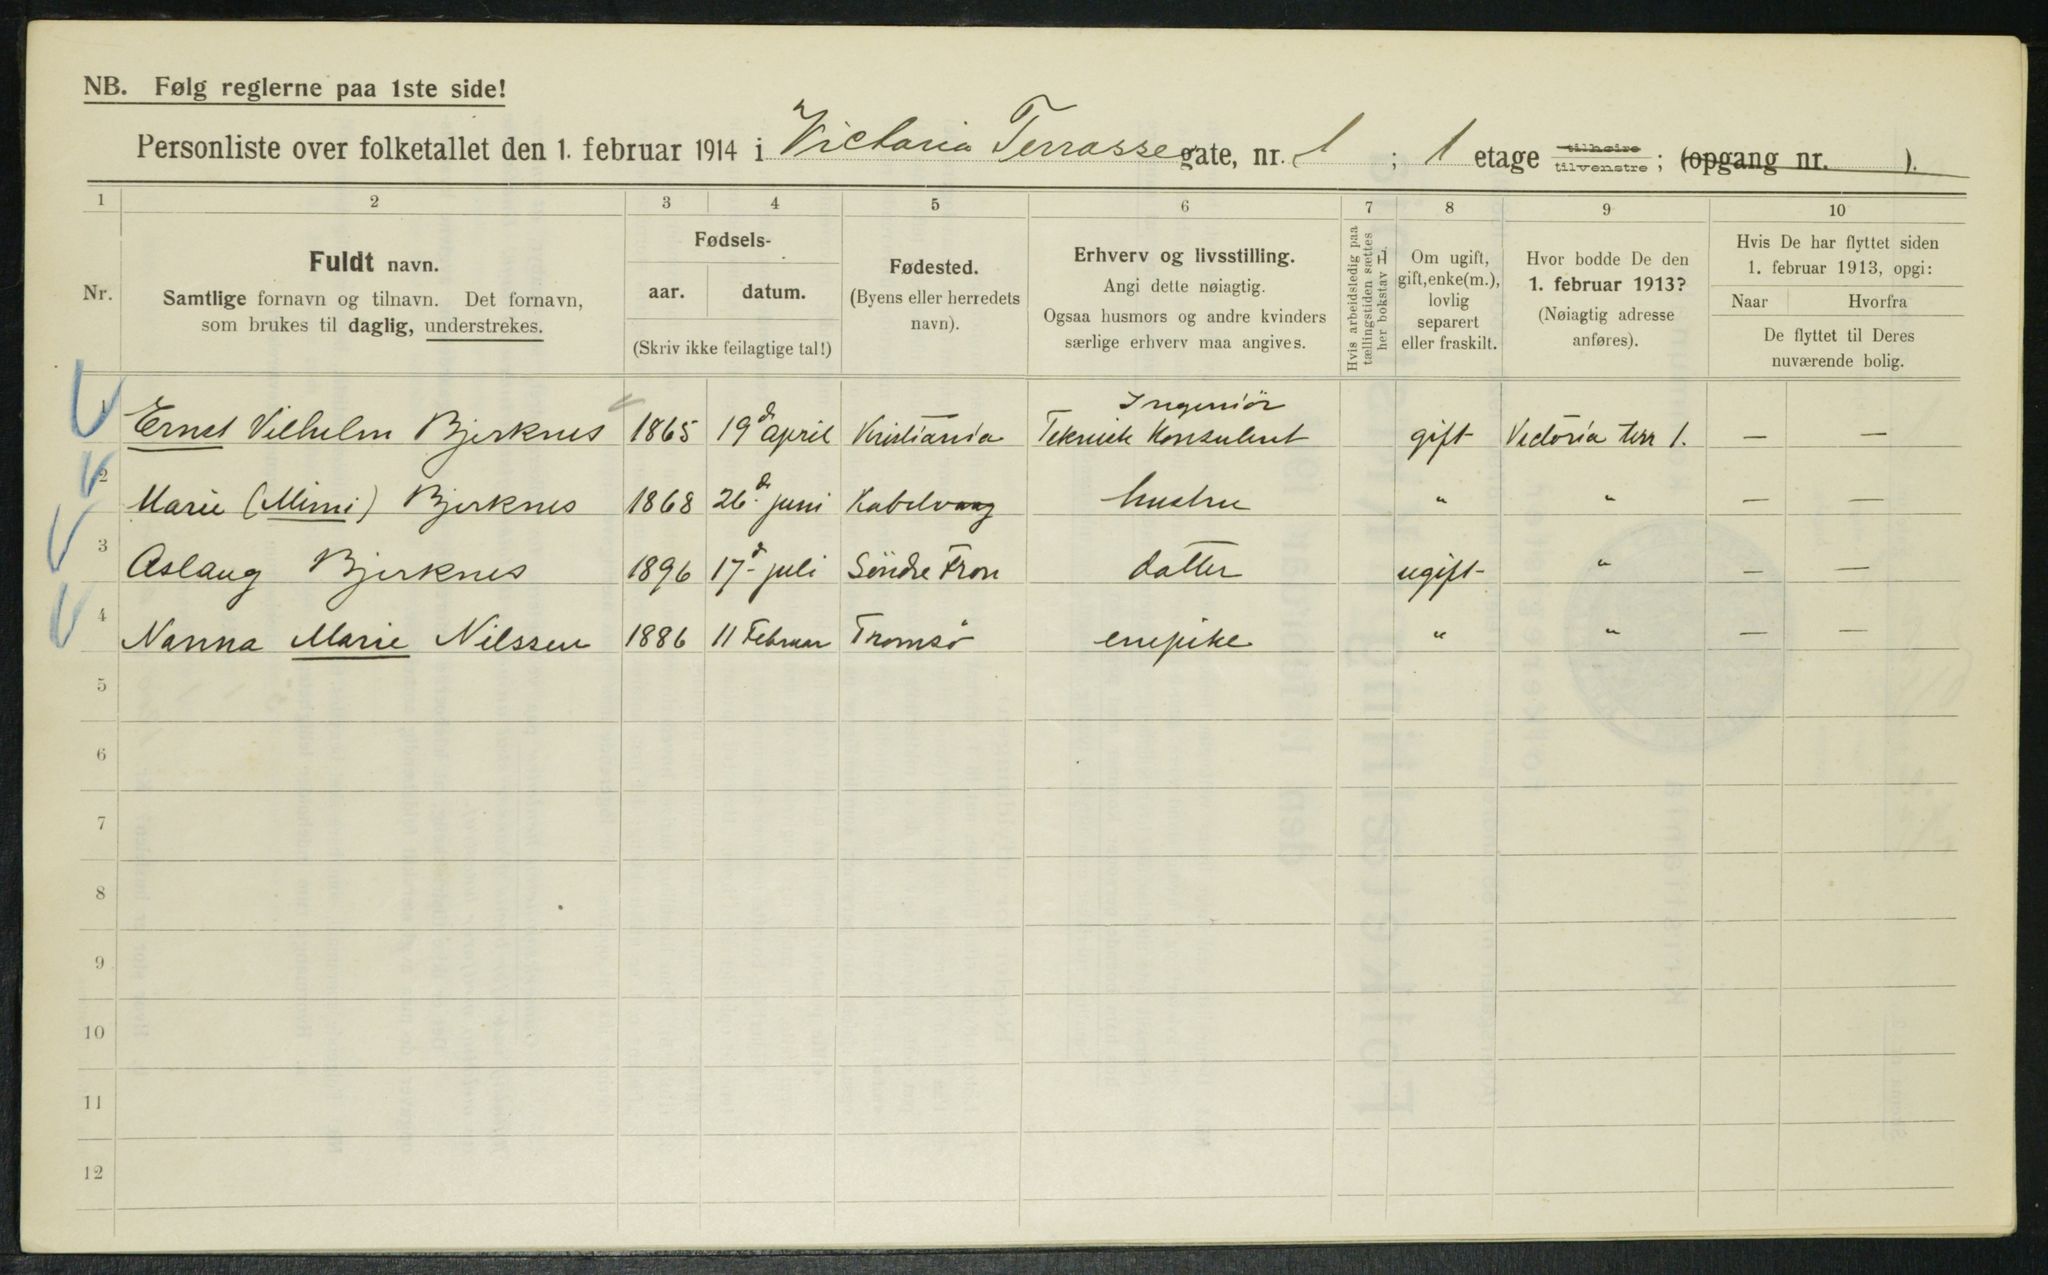 NB. Følg reglerne paa 1ste side!
Personliste over folketallet den 1. februar 1914 i Victoria Terrasse gate, nr. 1 ; 1 etage tilhøire tilvenstre ; (opgang nr. ).
1 2 3 4 5 6 7 8 9 10
Nr.
Fuldt navn.
Samtlige fornavn og tilnavn. Det fornavn,
som brukes til daglig, understrekes.
Fødsels-
aar. datum.
(Skriv ikke feilagtige tal!)
Fødested.
(Byens eller herredets
navn).
Erhverv og livsstilling.
Angi dette nøiagtig.
Ogsaa husmors og andre kvinders
særlige erhverv maa angives.
Hvis arbeidsledig paa
tællingstiden sættes
her bokstav L.
Om ugift,
gift, enke(m.),
lovlig
separert
eller fraskilt.
Hvor bodde De den
1. februar 1913?
(Nøiagtig adresse
anføres).
Hvis De har flyttet siden
1. februar 1913, opgi:
Naar Hvorfra
De flyttet til Deres
nuværende bolig.
1 Ernst Vilhelm Bjerknes 1865 19d april Kristiania Ingeniör Teknisk Konsulent gift Victoria terr 1. — —
2 Marie (Mimi) Bjerknes 1868 26d juni Kabelvaag hustru " " — —
3 Aslaug Bjerknes 1896 17d juli Söndre Fron datter ugift " — —
4 Nanna Marie Nilssen 1886 11 Februar Tromsö enepike " " — —
5
6
7
8
9
10
11
12